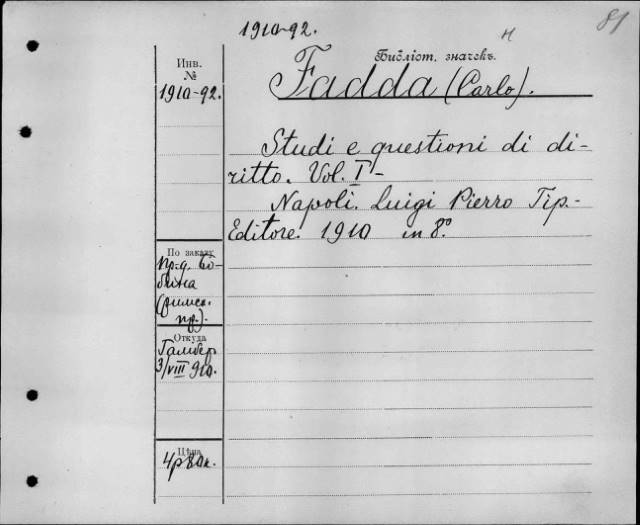 1910-92.
81
н
Библіот. значекъ.
Инв.
№
1910-92.
Fadda (Carlo).
Studi e questioni di di-
ritto. Vol. I-
Napoli. Luigi Pierro Tip.-
Editore. 1910 in 8º.
По заказу
пр-д. Бо-
бина
(римск.
пр.).
Откуда
Гамбер
3/VIII 910.
Цѣна
4р 80к.